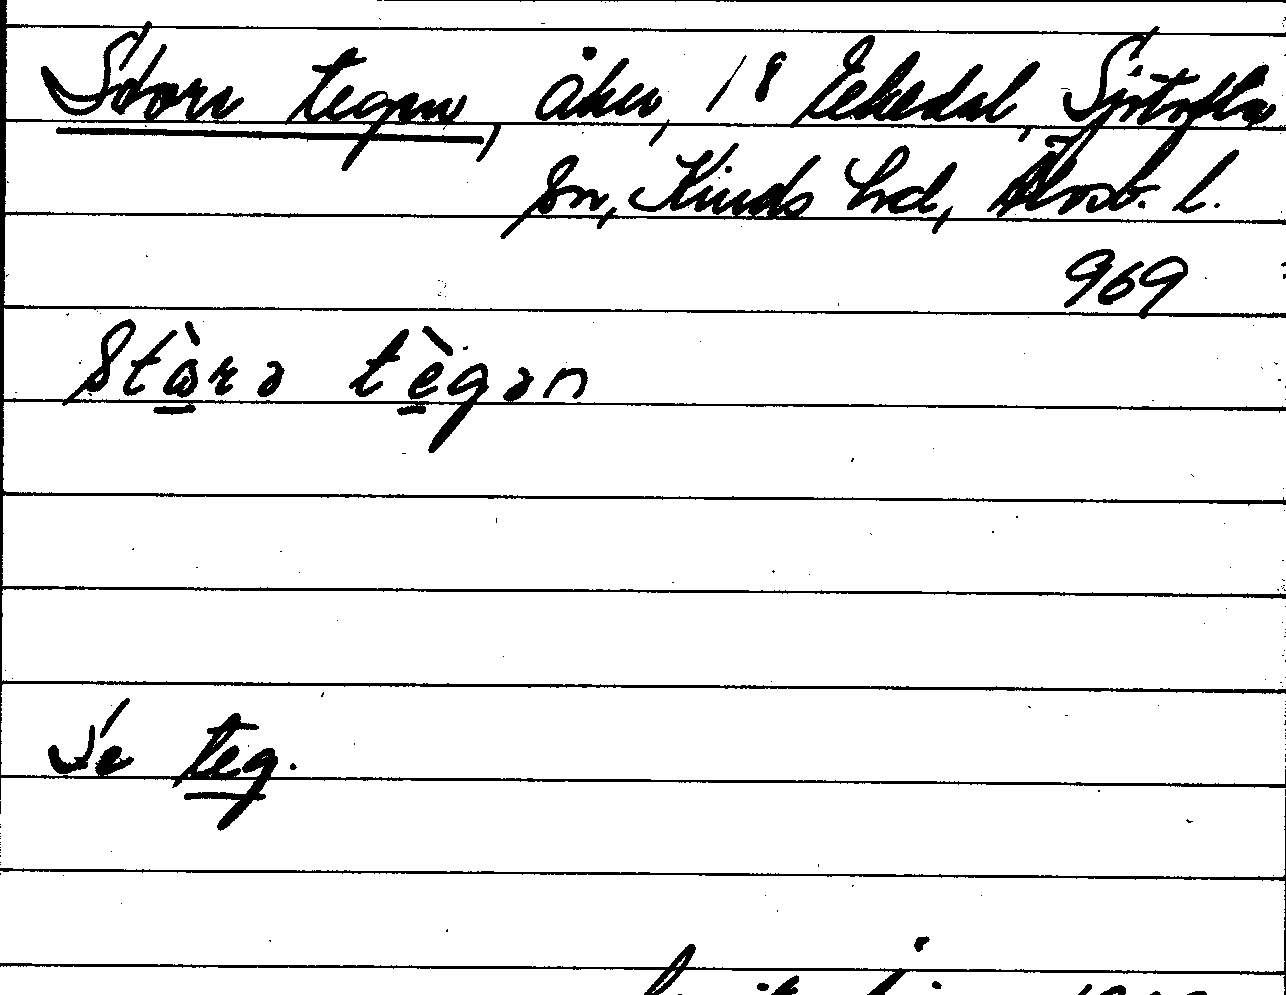 Stora tegen, åker, 1 8 Ekedal, Sjötofta
sn, Kinds hd, Älvsb. l.
969
stàrə tègən
Se teg.